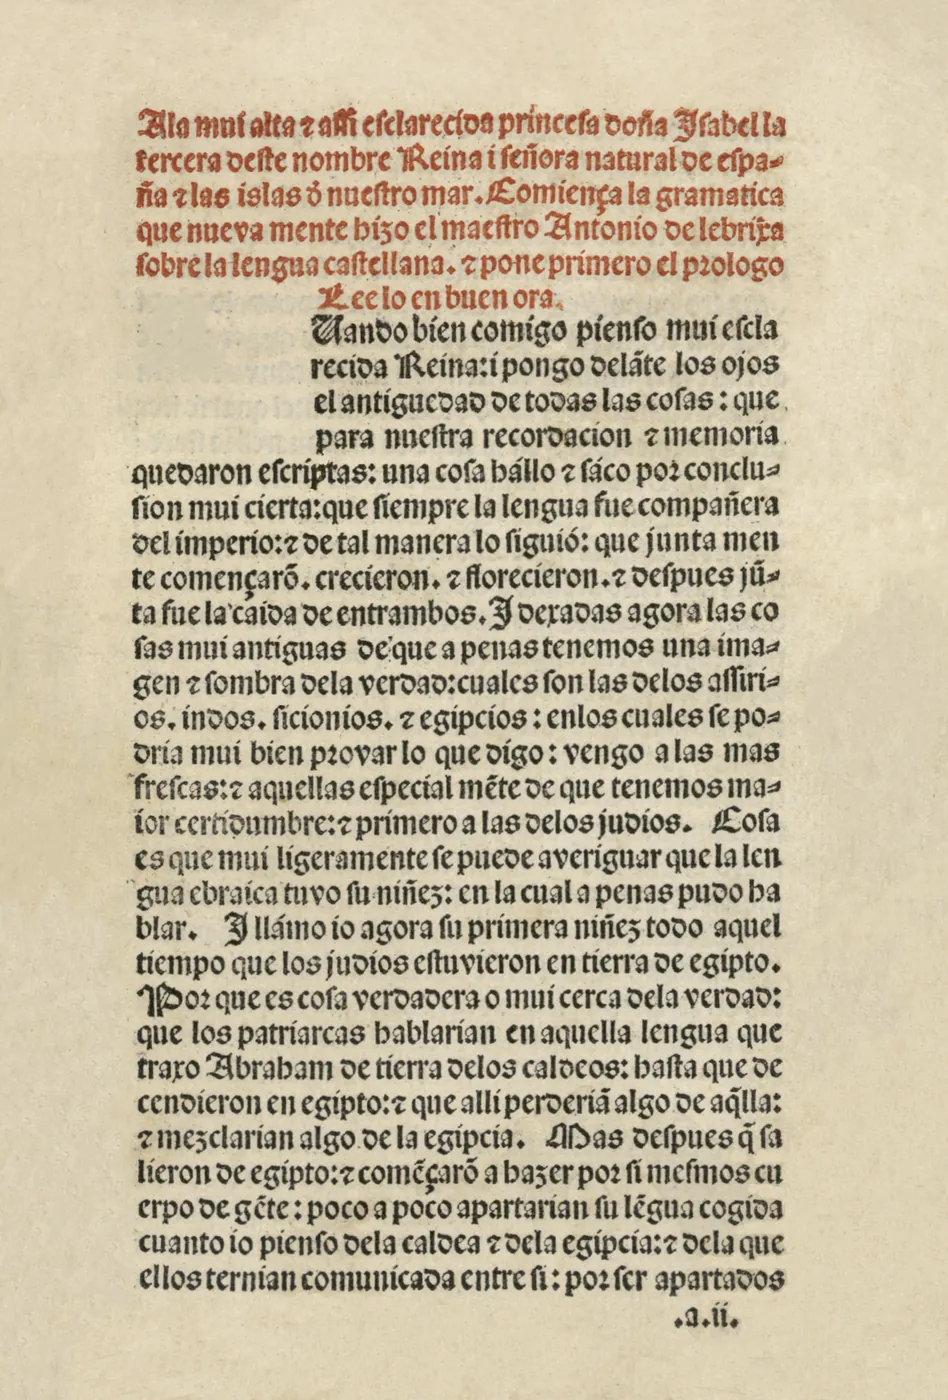 A la mui alta ⁊ assi esclarecida princesa doña Isabel la
tercera deste nombre Reina i señora natural de espa-
ña ⁊ las islas ð nuestro mar. Comiença la gramatica
que nueva mente hizo el maestro Antonio de lebrixa
sobre la lengua castellana. ⁊ pone primero el prologo
Lee lo en buen ora.
Uando bien comigo pienso mui escla
recida Reina: i pongo delãte los ojos
el antiguedad de todas las cosas: que
para nuestra recordacion ⁊ memoria
quedaron escriptas: una cosa hállo ⁊ sáco por conclu-
sion mui cierta: que siempre la lengua fue compañera
del imperio: ⁊ de tal manera lo siguió: que junta men
te començarõ. crecieron. ⁊ florecieron. ⁊ despues jũ-
ta fue la caida de entrambos. I dexadas agora las co
sas mui antiguas de que a penas tenemos una ima-
gen ⁊ sombra dela verdad: cuales son las delos assiri-
os. indos. sicionios. ⁊ egipcios: enlos cuales se po-
dria mui bien provar lo que digo: vengo a las mas
frescas: ⁊ aquellas especial mẽte de que tenemos ma-
ior certidumbre: ⁊ primero a las delos judios. Cosa
es que mui ligeramente se puede averiguar que la len
gua ebraica tuvo su niñez: en la cual a penas pudo ha
blar. I llámo io agora su primera niñez todo aquel
tiempo que los judios estuvieron en tierra de egipto.
Por que es cosa verdadera o mui cerca dela verdad:
que los patriarcas hablarian en aquella lengua que
traxo Abraham de tierra delos caldeos: hasta que de
cendieron en egipto: ⁊ que alli perderiã algo de aq̃lla:
⁊ mezclarian algo de la egipcia. Mas despues q̃ sa
lieron de egipto: ⁊ comẽçarõ a hazer por si mesmos cu
erpo de gẽte: poco a poco apartarian su lẽgua cogida
cuanto io pienso dela caldea ⁊ dela egipcia: ⁊ dela que
ellos ternian comunicada entre si: por ser apartados
.a.ii.